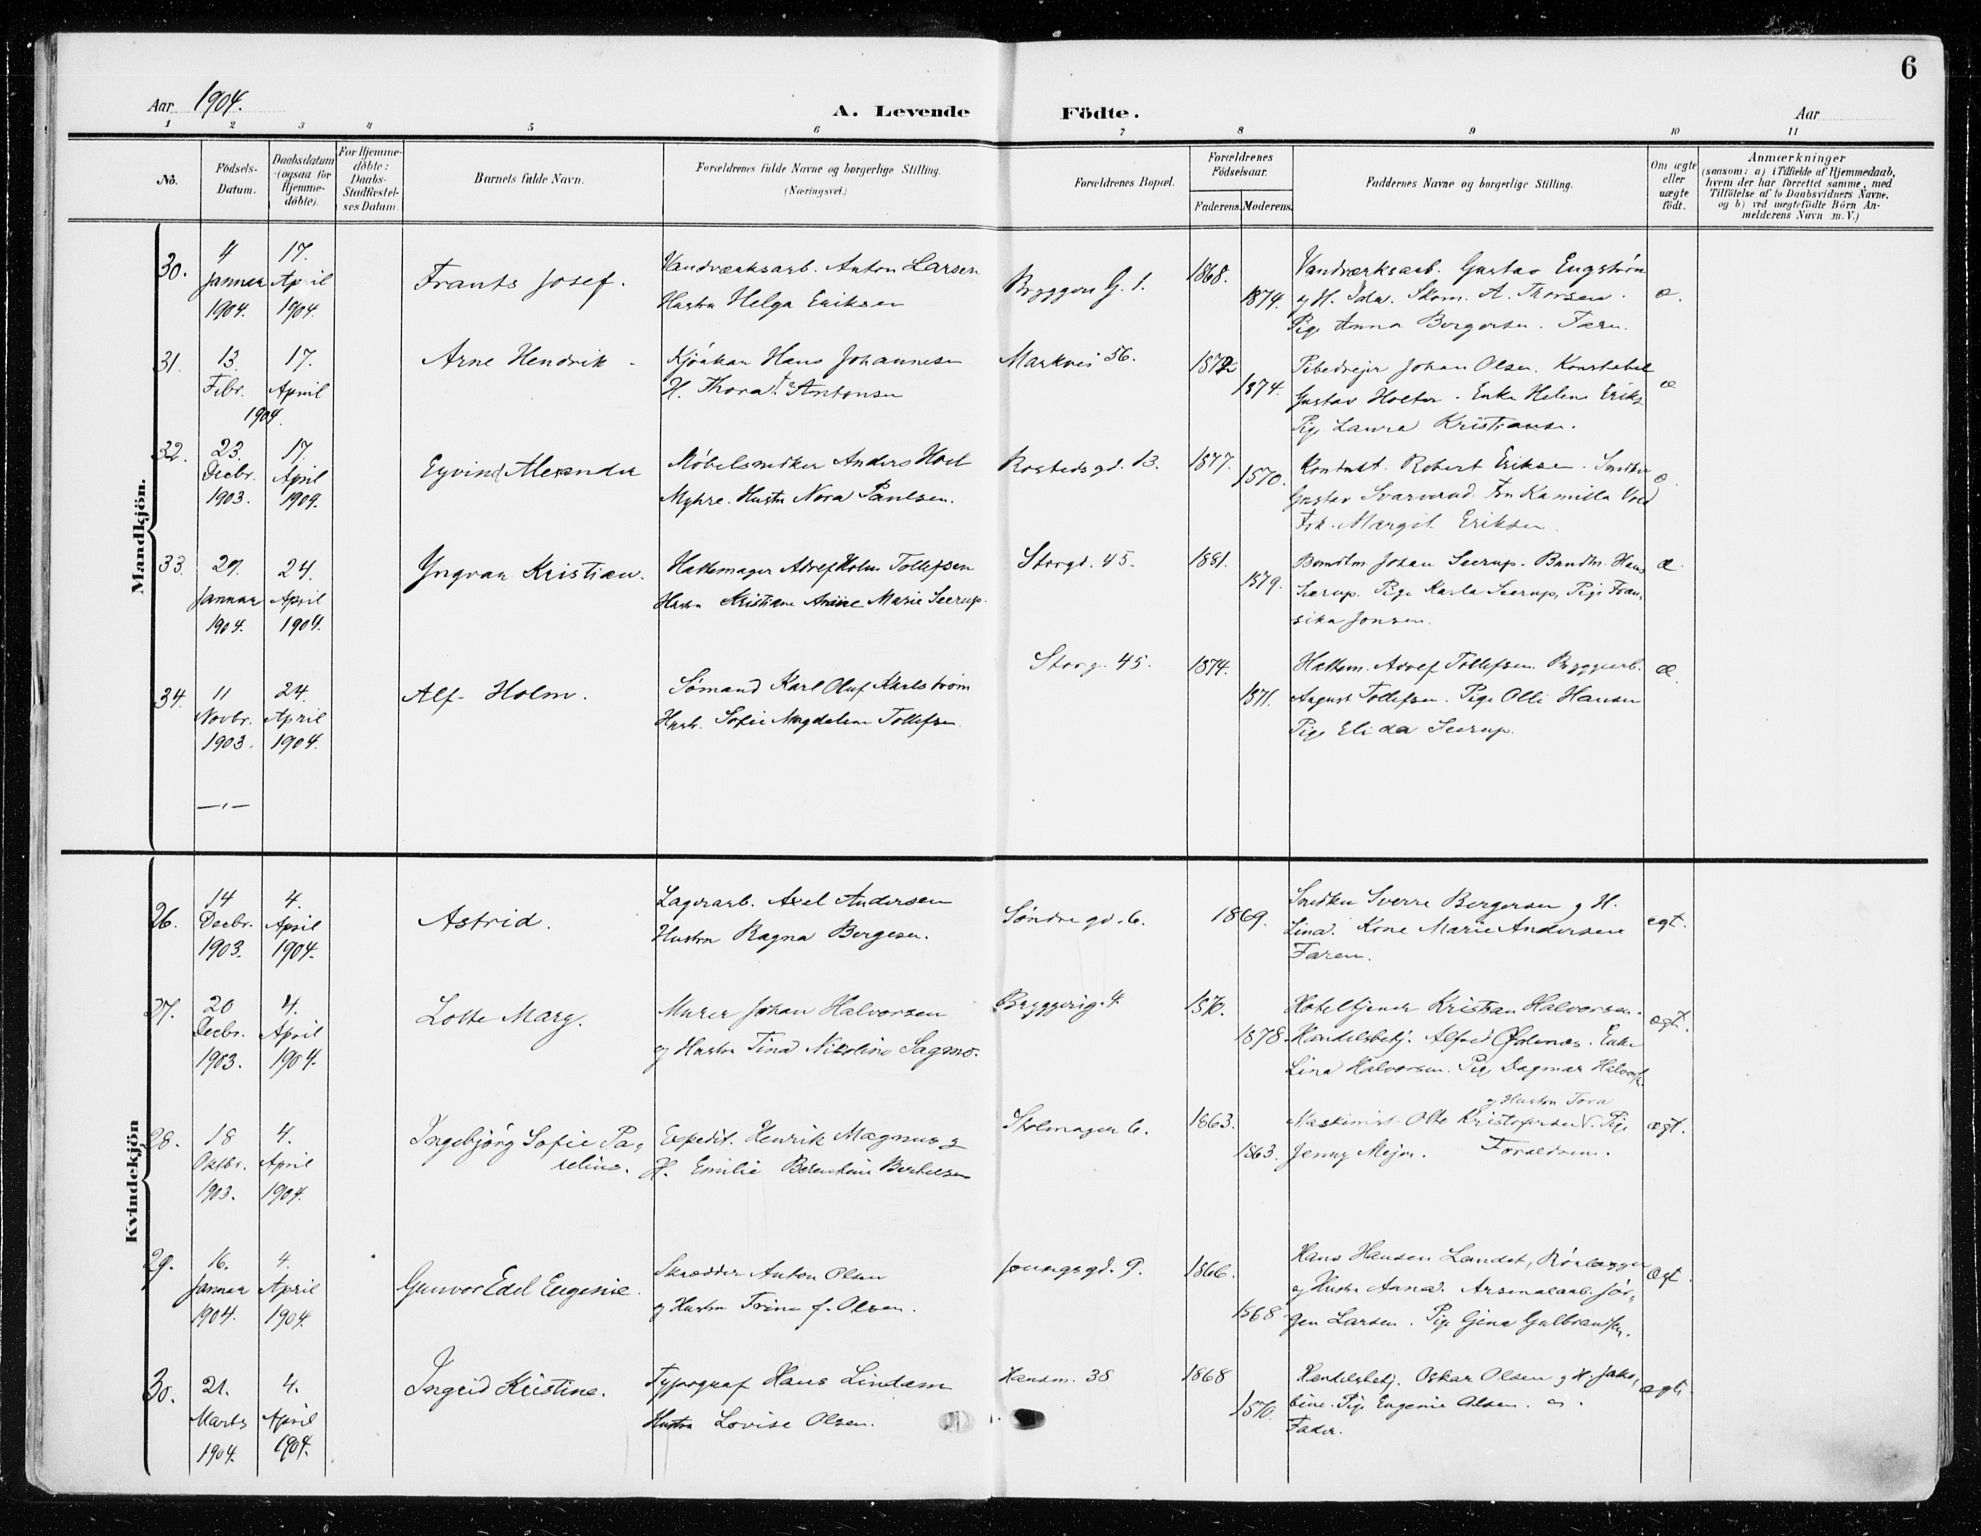 6
Aar 1904.
A. Levende Födte.
Aar
1 2 3 4 5 6 7 8 9 10 11
No.
Födsels-Datum.
Daabsdatum (ogsaa for Hjemme-döbte).
For Hjemme-döbte: Daabs-Stadfæstel-ses Datum.
Barnets fulde Navn.
Forældrenes fulde Navne og borgerlige Stilling. (Næringsvei.)
Forældrenes Bopæl.
Forældrenes Födselsaar.
Faderens. Moderens.
Faddernes Navne og borgerlige Stilling.
Om ægte eller uægte födt.
Anmærkninger
(saasom: a) i Tilfælde af Hjemmedaab, hvem der har forrettet samme, med Tilföielse af to Daabsvidners Navne, og b) ved uægtefödte Börn An-melderens Navn m. V.)
Mandkjön.
30. 4 Januar 1904. 17. April 1904.
Frants Josef.
Vandværksarb. Anton Larsen
Hustru Helga Eriksen
Bryggeri G. 1.
1868. 1874.
Vandværksarb. Gustav Engström
og H. Ida. Skom. A. Thorsen.
Pige Anna Borgersen. Faren.
æ.
31. 13. Febr. 17. April 1904.
Arne Hendrik
Hans Johannesen
H. Thora Antonsen
Markvei 56.
1872 1874.
Johan Olsen. Konstabel
Gustav Holter. Enke Helene Eriks.
Pige Laura Kristians.
æ
32. 23. Decbr. 1903. 17. April 1904.
Eyvind Alexander
Møbelsnedker Anders Hoel
Myhre. Hustru Nora Paulsen.
Rostedsgd. 13.
1877. 1870.
Kontorist. Robert Eriksen. Snedker
Gustav Svarverud. Fru Kamilla Vold
Frk. Margit Eriksen.
æ
33. 29. Januar 1904. 24. April 1904.
Yngvar Kristian.
Hattemager Adolf Holm Tollefsen
Hustru Kristiane Anine Marie Seerup.
Storgd. 45.
1881. 1879.
Bundtm. Johan Seerup. Bundtm. Hans
Seerup. Pige Karla Seerup, Pige Fran-
siska Jonsen.
æ.
34. 11 Novbr. 1903. 24. April 1904.
Alf Holm.
Sømand Karl Oluf Karlstrøm
Hust. Sofie Magdalene Tollefsen.
Storg. 45.
1874. 1871.
Hattem. Adolf Tollefsen. Bryggeriarb.
August Tollefsen. Pige Olli Hansen
Pige Elida Seerup.
æ.
Kvindekjön
26. 14 Decbr. 1903. 4. April 1904.
Astrid.
Lagerarb. Axel Andersen
Hustru Ragna Bergesen.
Søndre gd. 6.
1869.
Snedker Sverre Bergersen og H.
Lina. Kone Marie Andersen
Faren.
egt.
27. 20 Decbr. 1903. 4. April 1904.
Lotte Marg.
Murer Johan Halvorsen
og Hustru Tina Nikoline Sagmo.
Bryggerig. 4.
1870. 1878.
Hoteltjener Kristian Halvorsen.
Handelsbetj. Alfred Ødenæs. Enke
Lina Halvorsen. Pige Dagmar Halvors.
ægt.
28. 18 Oktbr. 1903. 4. April 1904.
Ingebjørg Sofie Pa-
uline.
Expedit. Henrik Magnus og
H. Emilie Berentine Berkelsen
Skolmager 6.
1863. 1863.
og Hustru Tora
Maskinist Olte Kristofersen. Pige
Jenny Mejer. Forældrene.
ægt.
29. 16. Januar 1904. 4. April 1904.
Gunvor Edel Eugenie.
Skrædder Anton Olsen
og Hustru Trine f. Olsen.
Youngsgd. 9.
1866. 1868
Hans Hansen Landet, Rørlægger
og Hustru Anna. Arsenalarb. Jør-
gen Larsen. Pige Gina Gulbrandsen.
Ægt.
30. 21. Marts 1904. 4. April 1904.
Ingrid Kristine.
Typograf Hans Lindam
Hustru Lovise Olsen.
Hausm. 38
1868 1870.
Handelsbetj. Oskar Olsen og H. Jako-
bine. Pige Eugenie Olsen. og
Fader.
ægt.